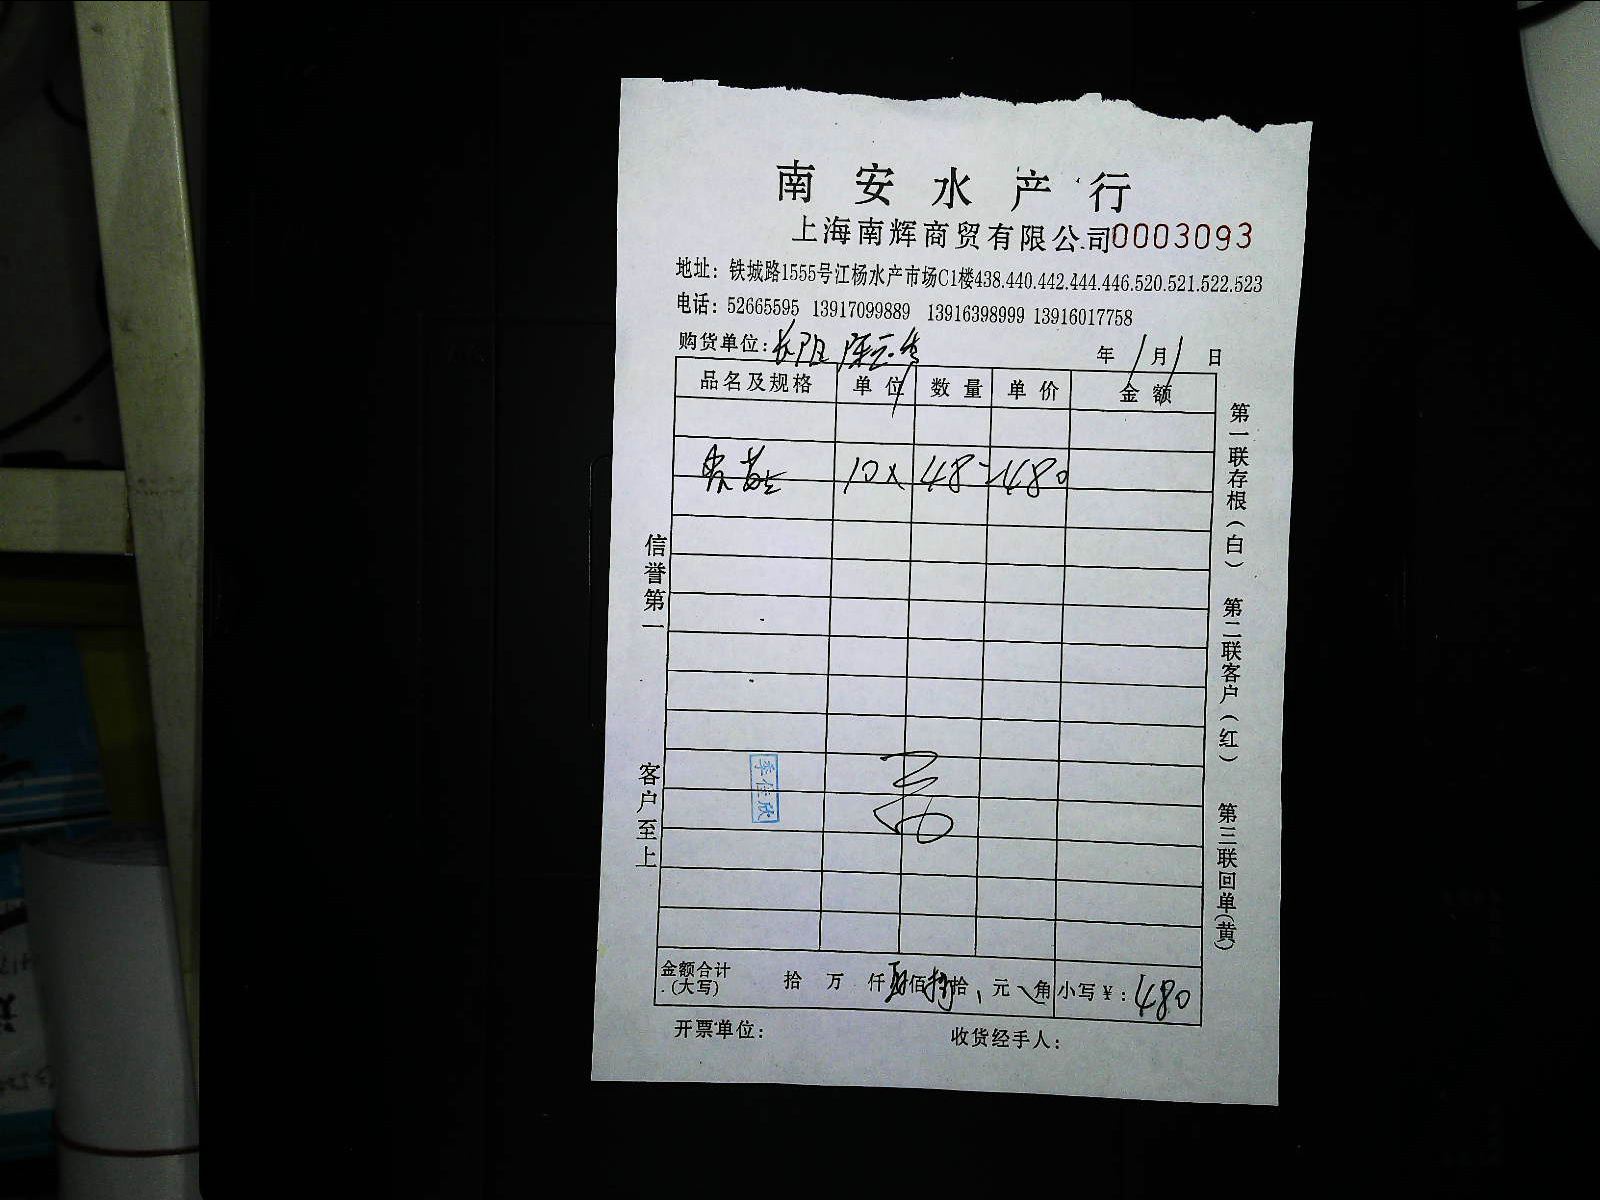 南安水产行
上海南辉商贸有限公司0003093
地址：铁城路1555号江杨水产市场C1楼438.440.442.444.446.520.521.522.523
电话：52665595 13917099889 13916398999 13916017758
购货单位：
年 / 月 / 日
品名及规格 单位 数量 单价 金额
10× 48=480
信誉第一
客户至上
第一联存根（白） 第二联客户（红） 第三联回单（黄）
季佳欣
金额合计 拾 万 仟 肆佰 捌拾 元 角 小写￥：480
（大写）
开票单位： 收货经手人：